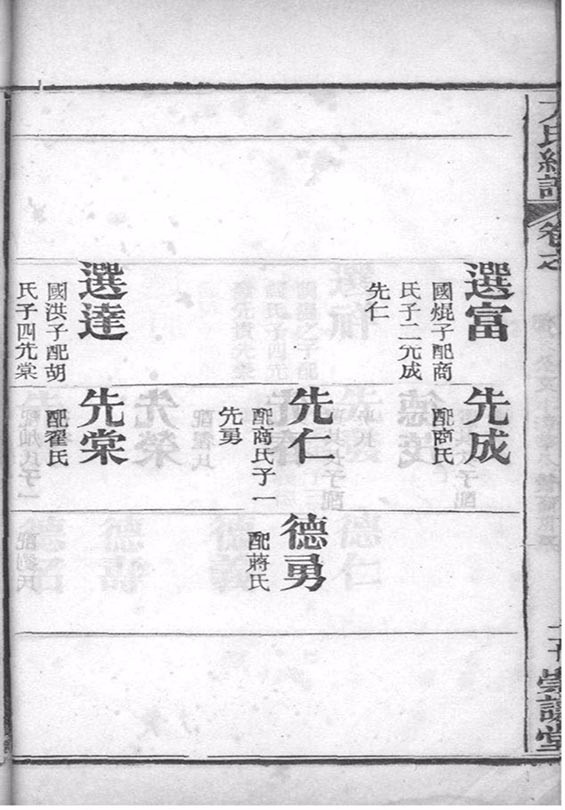 卷之
崇讓堂
選富
國焜子配商
氏子二先成
先仁
先成
配商氏
先仁
配商氏子一
先勇
德勇
配蔣氏
選達
國洪子配胡
氏子四先棠
先棠
配翟氏